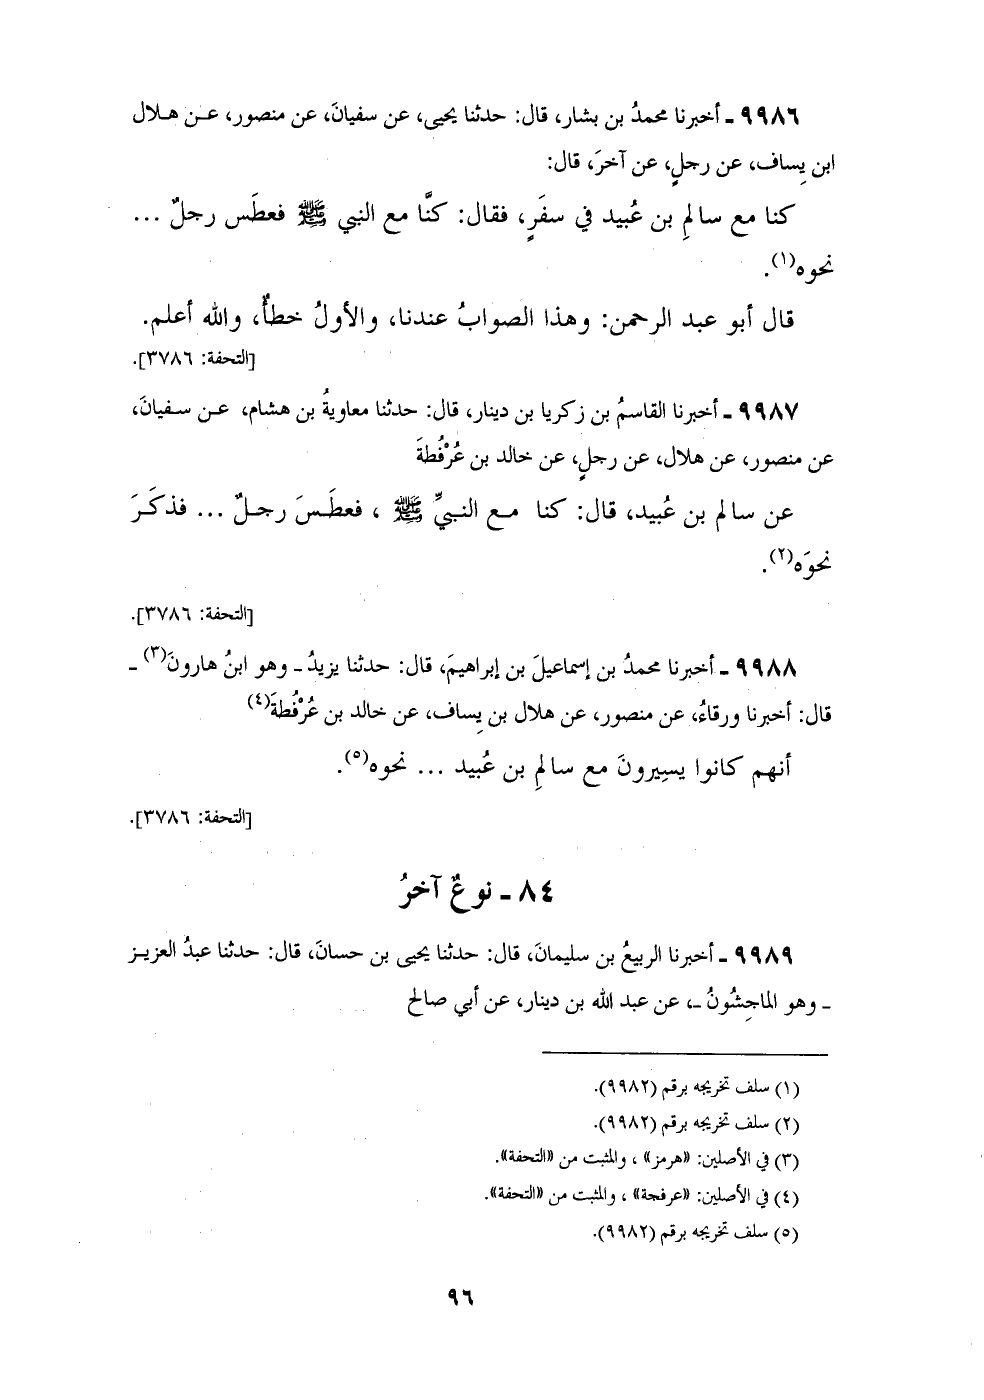 ٩٩٨٦ ـ أخبرنا محمدُ بن بشار، قال: حدثنا يحيى، عن سفيانَ، عن منصور، عـن هـلال
ابن يِساف، عن رجلٍ، عن آخرَ، قال:
كنا مع سالمِ بن عُبيد في سفَرٍ، فقال: كنَّا مع النبي ﷺ فعطَس رجلٌ ...
نحوه(١).
قال أبو عبد الرحمن: وهذا الصوابُ عندنا، والأولُ خطأٌ، والله أعلم.
[التحفة: ٣٧٨٦].
٩٩٨٧ ـ أخبرنا القاسمُ بن زكريا بن دينار، قال: حدثنا معاويةُ بن هشام، عـن سـفيانَ،
عن منصور، عن هلال، عن رجلٍ، عن خالد بن عُرْفُطةَ
عن سالم بن عُبيد، قال: كنا مـع النـبيِّ ﷺ ، فعطَـسَ رجـلٌ ... فذكَـرَ
نحوَه(٢).
[التحفة: ٣٧٨٦].
٩٩٨٨ ـ أخبرنا محمدُ بن إسماعيلَ بن إبراهيمَ، قال: حدثنا يزيدُ ـ وهو ابنُ هارونَ(٣) ـ
قال: أخبرنا ورقاءُ، عن منصور، عن هلال بن يِساف، عن خالد بن عُرْفُطةَ(٤)
أنهم كانوا يسِيرونَ مع سالمِ بن عُبيد ... نحوه(٥).
[التحفة: ٣٧٨٦].
٨٤ ـ نوعٌ آخرُ
٩٩٨٩ ـ أخبرنا الربيعُ بن سليمانَ، قال: حدثنا يحيى بن حسانَ، قال: حدثنا عبدُ العزيـز
ـ وهو الماجِشُونُ ـ، عن عبد الله بن دينار، عن أبي صالح
(١) سلف تخريجه برقم (٩٩٨٢).
(٢) سلف تخريجه برقم (٩٩٨٢).
(٣) في الأصلين: «هرمز» ، والمثبت من «التحفة».
(٤) في الأصلين: «عرفجة» ، والمثبت من «التحفة».
(٥) سلف تخريجه برقم (٩٩٨٢).
٩٦